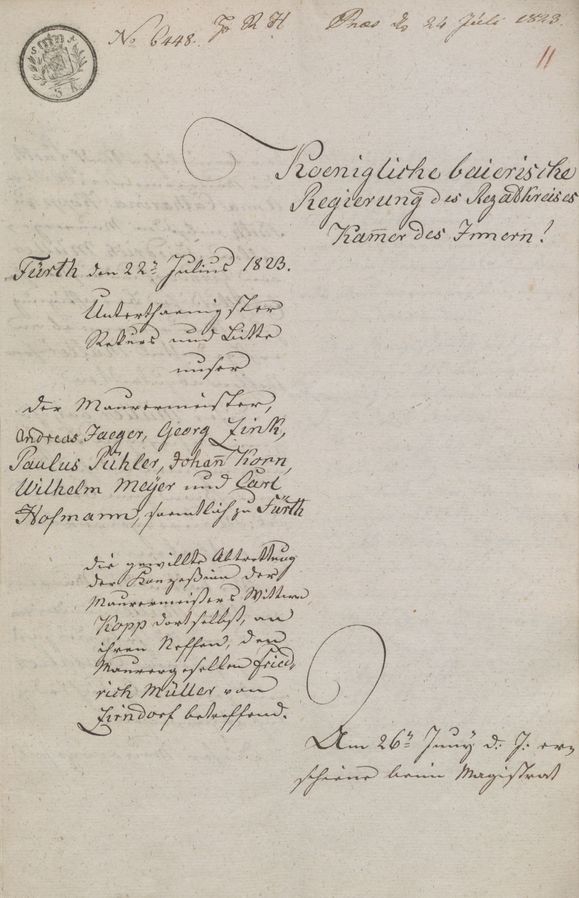 No 6448. J R H Praes. d. 24 Juli 1823.
11
3 K.
Koenigliche baierische
Regierung des Rezatkreises
Kam̄er des Innern!
Fürth den 22n Julius 1823.
Unterthaenigster
Rekurs und Bitte
unser
der Maurermeister,
Andreas Jaeger, Georg Zink,
Paulus Pühler, Johan̄ Korn,
Wilhelm Meÿer und Carl
Hofmann, saemtlich zu Fürth
die gewillte Abtrettung
der Konzession der
Maurermeisters Wittwe
Kopp dortselbst, an
ihren Neffen, den
Maurergesellen Fried„
rich Müller von
Zirndorf betreffend.
Am 26n Junÿ d. J. er„
schiene beim Magistrat